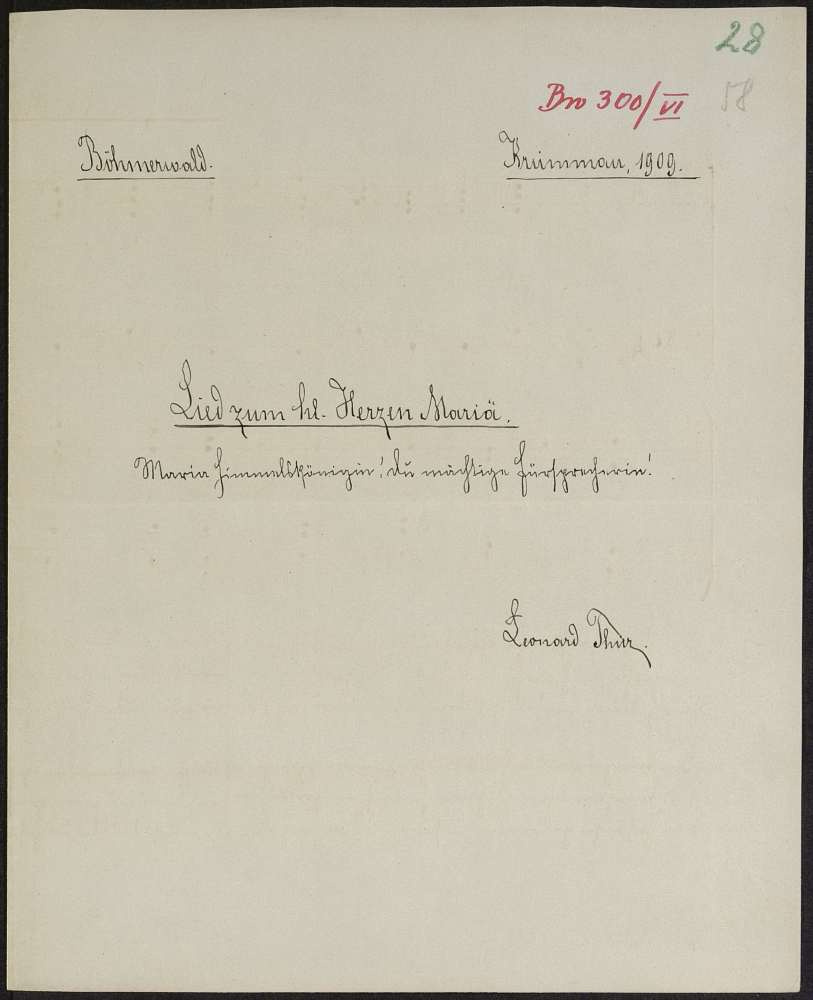 28
Bro 300/VI 58
Böhmerwald. Krummau, 1909.
Lied zum hl. Herzen Mariä.
Maria Himmelskönigin! du mächtige Fürsprecherin!
Leonard Thür.